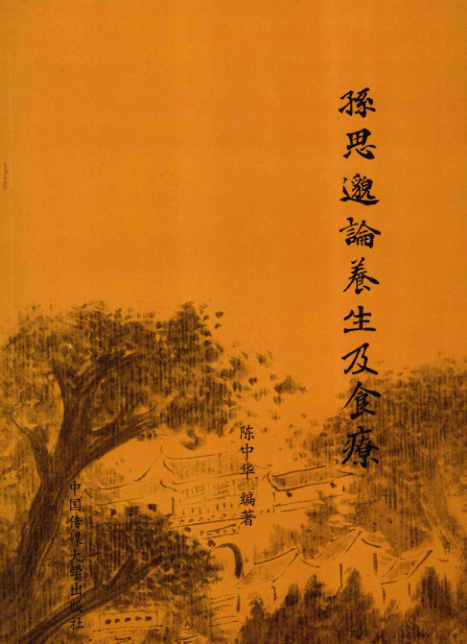 孫思邈論養生及食療
陈中华 编著
中国传媒大学出版社